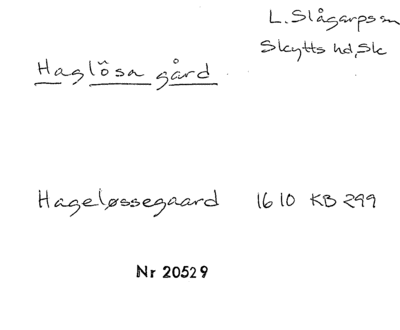 L. Slågarps sn
Skytts hd, Sk
Haglösa gård
Hageløssegaard 1610 KB 299
Nr 20529